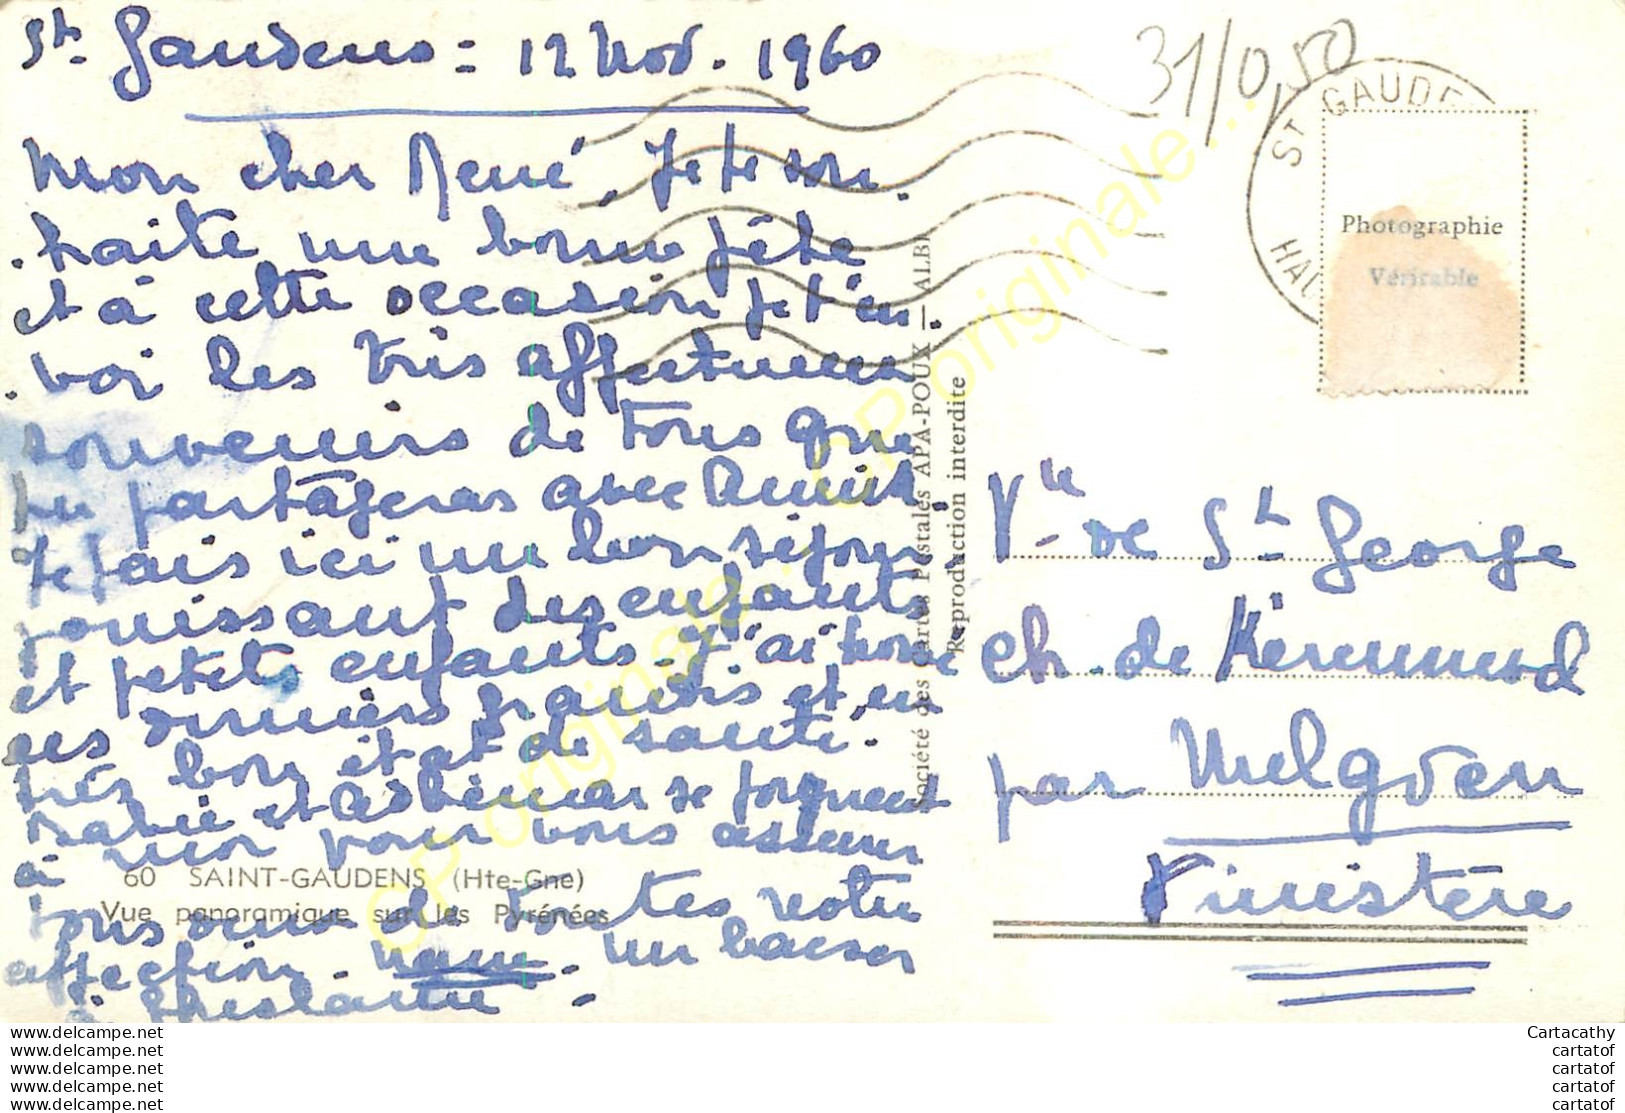 St Gaudens = 12 Nov. 1960
Mon cher René, Je te sou.
.haite une bonne fête
et à cette occasion je t'en.
.voi les très affectueux
souvenirs de tous que
tu partageras avec
Je fais ici un bon séjour
jouissant des enfants
et petits enfants. J'ai trouvé
ces derniers grandis et en
très bon état de santé.
et se joignent
à moi pour vous assurer
tous deux de toutes notre
affection. un baiser
à Ghislaine.
60 SAINT-GAUDENS (Hte-Gne)
Vue panoramique sur les Pyrénées
Société des cartes Postales APA-POUX — ALBI
Reproduction interdite
31/0,50
ST GAUDE
HAU
Photographie
Véritable
Vte de St George
ch. de
par Melgven
Finistère
CP originale...
www.delcampe.net
www.delcampe.net
www.delcampe.net
www.delcampe.net
www.delcampe.net
Cartacathy
cartatof
cartatof
cartatof
cartatof